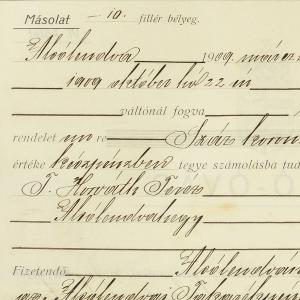 Másolat —10. fillér bélyeg.
Alsólendva 1909 március
1909 október hó 22 én
váltónál fogva
rendelet em re Száz korona
értéke készpénzben tegye számolásba tud
T. Horváth Teréz
Alsólendvahegy
Fizetendő Alsólendván
Alsólendvai Takarék